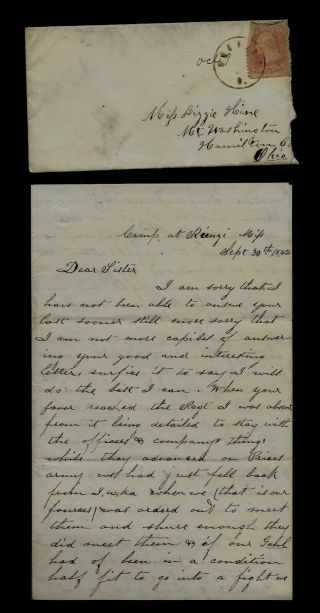 Oct
Miss Lizzie Hine
Mt Washington
Hamilton C.
Ohio
Camp at Rienzi Miss
Sept 30th 1862
Dear Sister
I am sorry that I
have not been able to answe your
last sooner still more sorry that
I am not more capible of answer-
ing your good and interesting
letter, surfies it to say I will
do the best I can. When your
favor reached the Regt I was absent
from it being detailed to stay with
the officers & company things
while they advanced on Prices
army we had just fell back
from I,uka when we (that is our
fources) was orderd out to meet
them and shure enough they
did meet them & if our Genl
had of been in a condition
half fit to go into a fight we